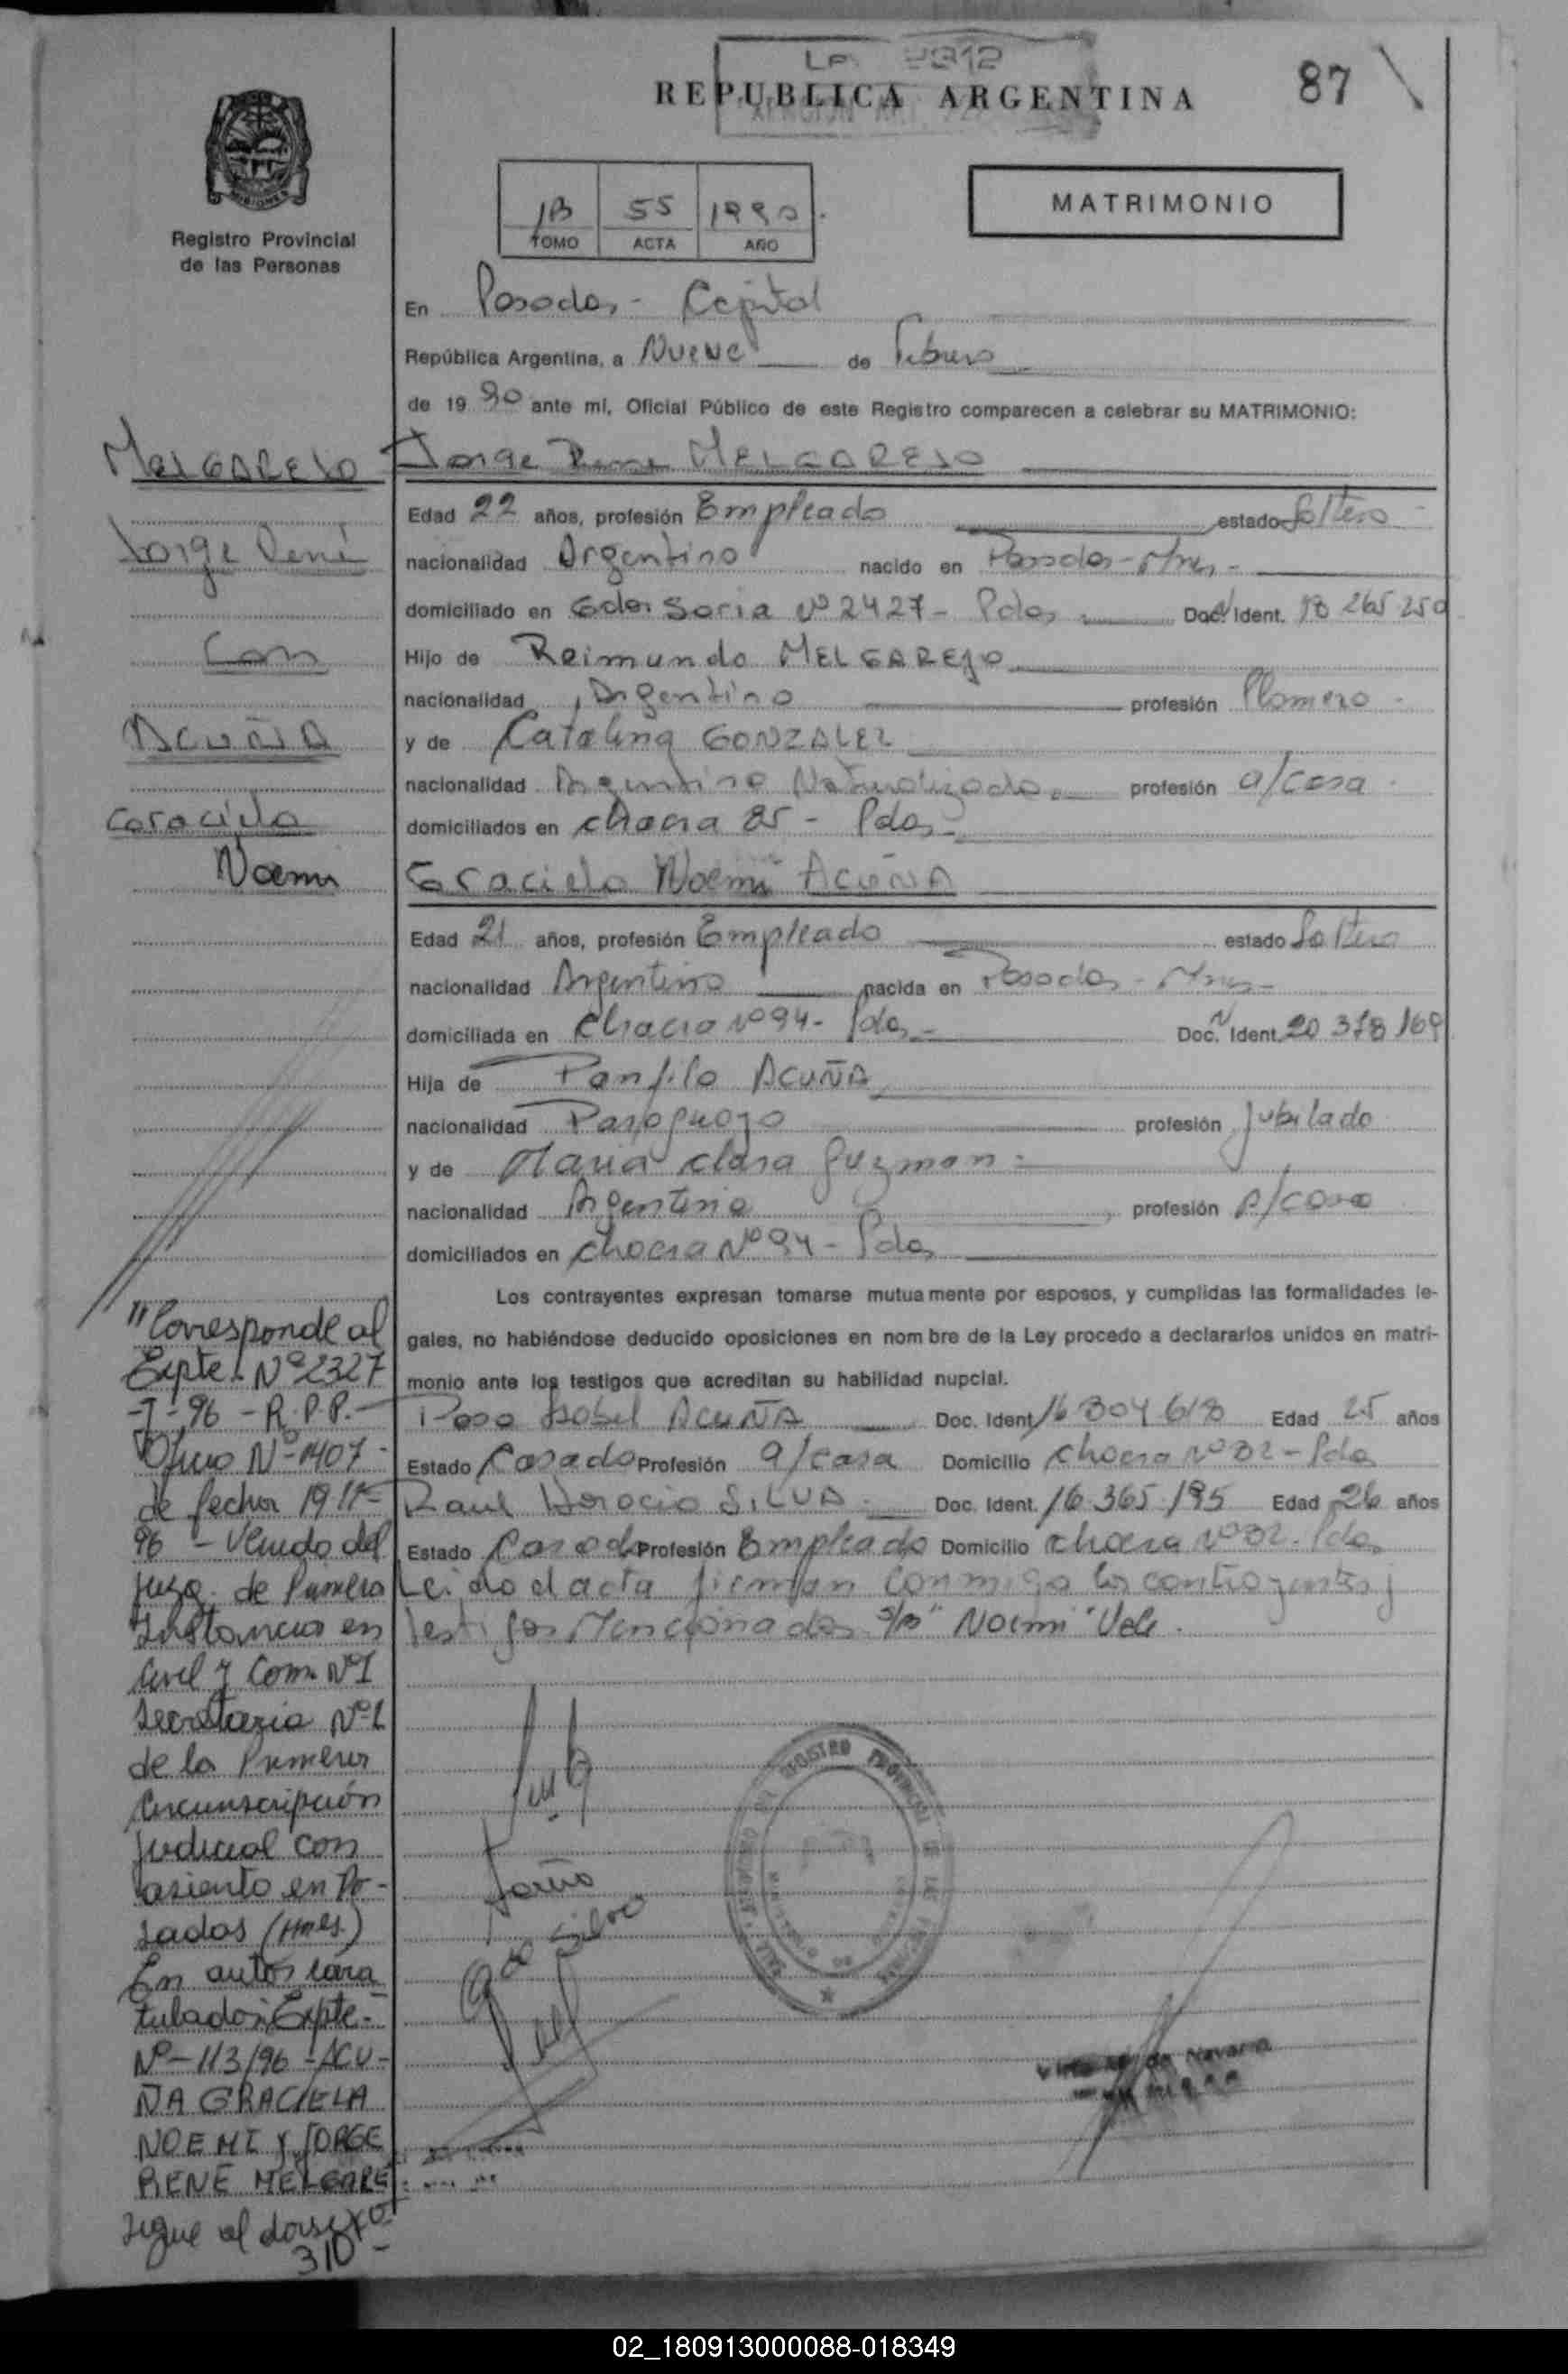 87
REPUBLICA ARGENTINA
MISIONES
Registro Provincial
de las Personas
1B 55 1990
TOMO ACTA AÑO
MATRIMONIO
En Posadas - Capital
República Argentina, a Nueve de Febrero
de 1990 ante mí, Oficial Público de este Registro comparecen a celebrar su MATRIMONIO:
Jorge Rene MELGAREJO
Edad 22 años, profesión Empleado estado Soltero
nacionalidad Argentino nacido en Posadas - Mnes -
domiciliado en Gdor Soria Nº 2427 - Pdas Doc. Ident. 18 265 250
Hijo de Reimundo MELGAREJO
nacionalidad Argentino profesión Plomero
y de Catalina GONZALEZ
nacionalidad Argentina Naturalizada profesión a/casa
domiciliados en chacra 85 - Pdas -
Graciela Noemi ACUÑA
Edad 21 años, profesión Empleado estado Soltera
nacionalidad Argentina nacida en Posadas - Mnes -
domiciliada en Chacra Nº 94 - Pdas - Doc. Ident. 20 378 169
Hija de Panfilo ACUÑA
nacionalidad Paraguayo profesión Jubilado
y de Maria Clara Guzman -
nacionalidad Argentina profesión a/casa
domiciliados en chacra Nº 94 - Pdas
Los contrayentes expresan tomarse mutuamente por esposos, y cumplidas las formalidades le-
gales, no habiéndose deducido oposiciones en nombre de la Ley procedo a declararlos unidos en matri-
monio ante los testigos que acreditan su habilidad nupcial.
Rosa Isabel ACUÑA Doc. Ident. 16 804 618 Edad 25 años
Estado Casado Profesión a/casa Domicilio Chacra Nº 82 - Pdas
Raul Horacio SILVA Doc. Ident. 16 365 195 Edad 26 años
Estado Casado Profesión Empleado Domicilio chacra Nº 82 - Pdas
Leido el acta firman conmigo los contrayentes y
testigos Mencionados s/r "Noemi" Vale.
MELGAREJO
Jorge René
Con
ACUÑA
Graciela
Noemi
"Corresponde al
Expte. Nº 2327
-J- 96 - R.P.P. -
Oficio Nº 1407 -
de fecha 19-11-
96 - Venido del
Juzg. de Primera
Instancia en
Civil y Com. Nº 1
Secretaria Nº 1
de la Primera
Circunscripción
Judicial con
asiento en Po-
sadas (Mnes)
En autos cara
tulados; Expte -
Nº - 113/96 - ACU-
ÑA GRACIELA
NOEMI Y JORGE
RENE MELGARE
Sigue al dorso
310 -
02_180913000088-018349